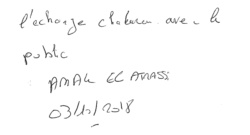 l'échange chaleureux avec le
public
AMAL EL ANASSI
03/10/2018